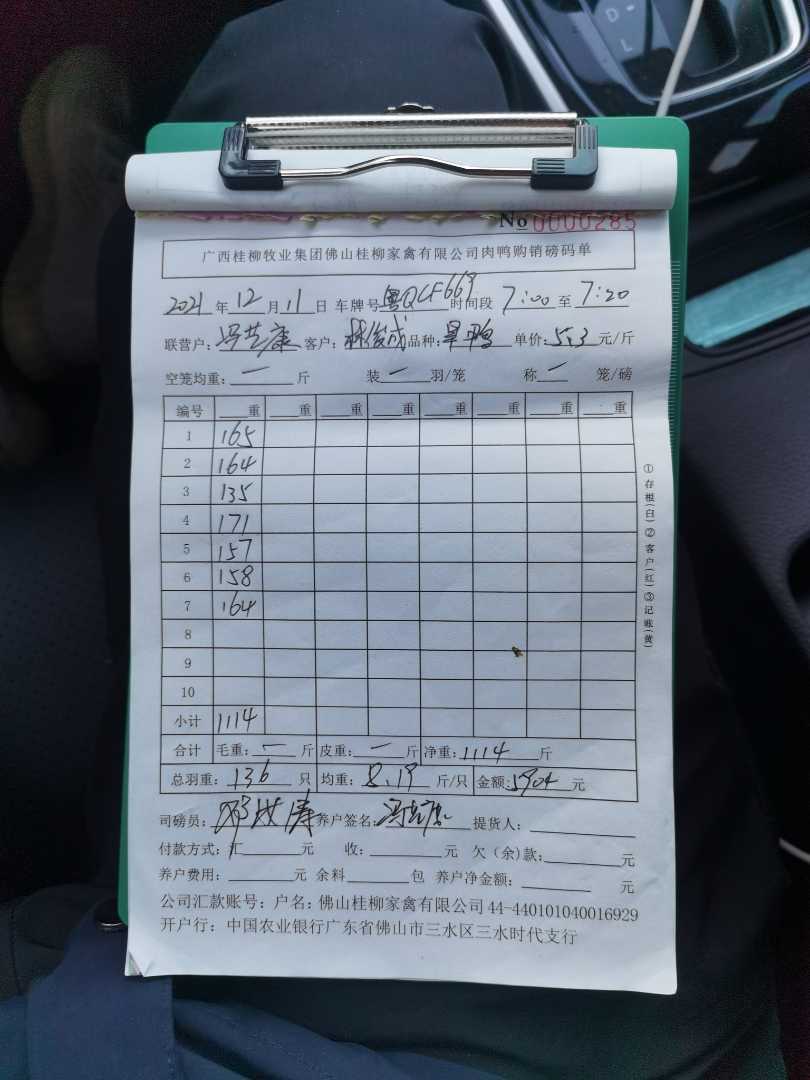 D
L
No 0000285
广西桂柳牧业集团佛山桂柳家禽有限公司肉鸭购销磅码单
2021年12月11日 车牌号粤QCF669时间段7:00至7:20
联营户:冯芝康 客户:林俊成 品种:旱鸭 单价:5.3元/斤
空笼均重:一斤 装一羽/笼 称一笼/磅
编号 重 重 重 重 重 重 重 重
1 165
2 164
3 135
4 171
5 157
6 158
7 164
8
9
10
小计 1114
合计 毛重:一斤 皮重:一斤 净重:1114斤
总羽重:136只 均重:8.19斤/只 金额:5904元
司磅员: 养户签名: 提货人:
付款方式:汇 元 收: 元 欠(余)款: 元
养户费用: 元 余料 包 养户净金额: 元
公司汇款账号:户名:佛山桂柳家禽有限公司 44-440101040016929
开户行:中国农业银行广东省佛山市三水区三水时代支行
①存根(白)②客户(红)③记账(黄)